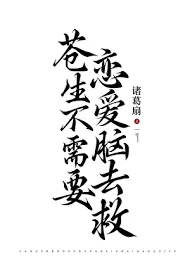 苍生不需要
恋爱脑去救
诸葛扇